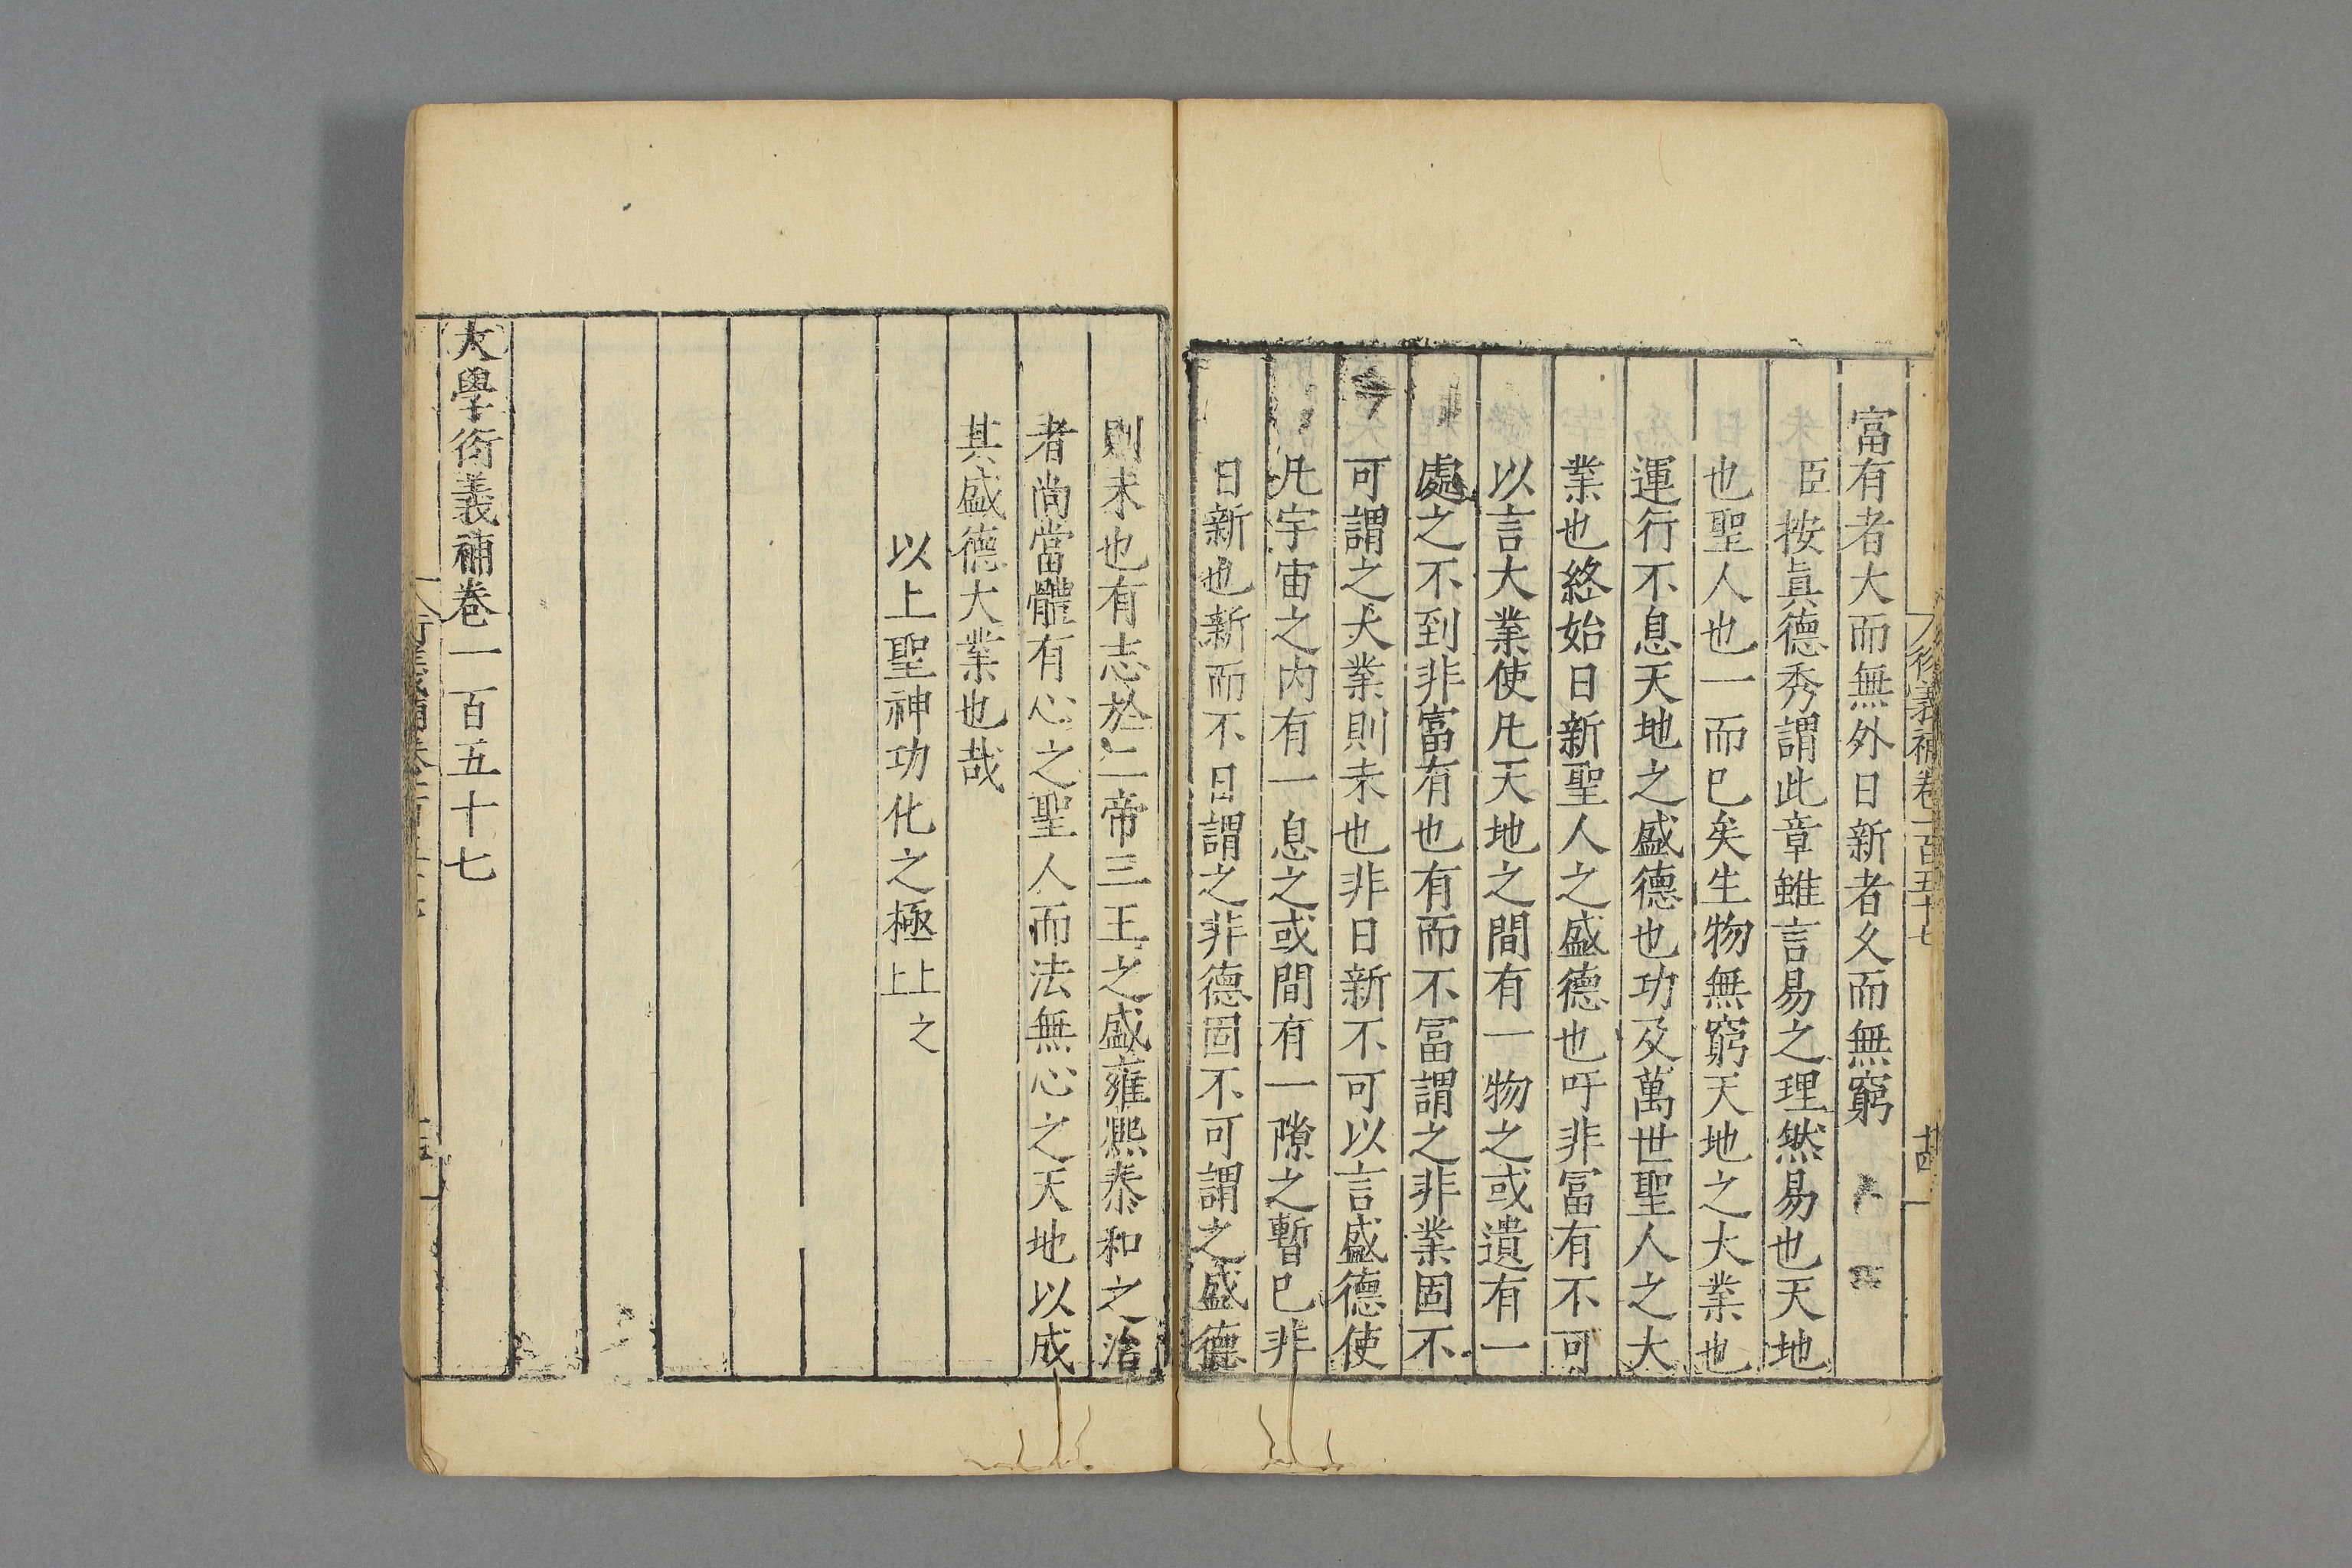 衍義補卷一百五十七　十四
富有者大而無外日新者久而無窮
臣按眞德秀謂此章雖言易之理然易也天地
也聖人也一而巳矣生物無窮天地之大業也
運行不息天地之盛德也功及萬世聖人之大
業也終始日新聖人之盛德也吁非冨有不可
以言大業使凡天地之間有一物之或遺有一
處之不到非富有也有而不冨謂之非業固不
可謂之大業則未也非日新不可以言盛德使
凡宇宙之内有一息之或間有一隙之暫巳非
日新也新而不日謂之非德固不可謂之盛德
則未也有志於二帝三王之盛雍熙泰和之治
者尚當體有心之聖人而法無心之天地以成
其盛德大業也哉
以上聖神功化之極上之上
大學衍義補卷一百五十七